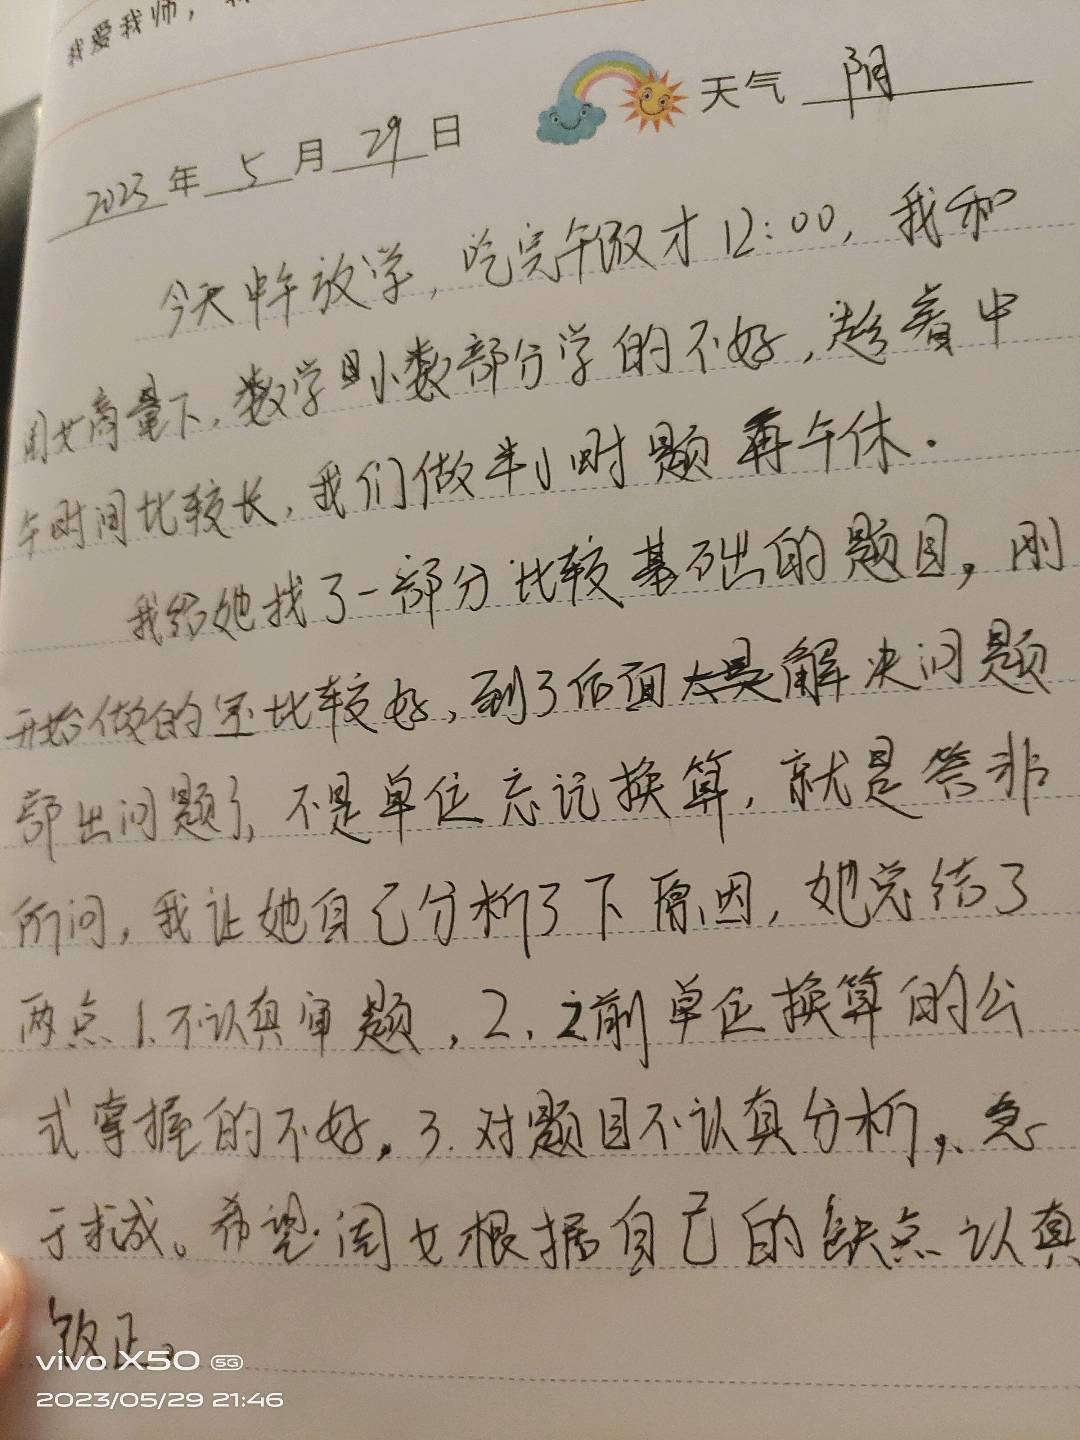 我爱我师，
2023年 5 月 29 日 天气 阴
今天中午放学，吃完午饭才12:00，我和
闺女商量下，数学小数部分学的不好，趁着中
午时间比较长，我们做半小时题再午休.
我给她找了一部分比较基础的题目，刚
开始做的还比较好，到了后面大题解决问题
部出问题了，不是单位忘记换算，就是答非
所问，我让她自己分析了下原因，她总结了
两点1.不认真审题，2.之前单位换算的公
式掌握的不好，3.对题目不认真分析，急
于求成。希望闺女根据自己的缺点认真
改正。
vivo X50 5G
2023/05/29 21:46